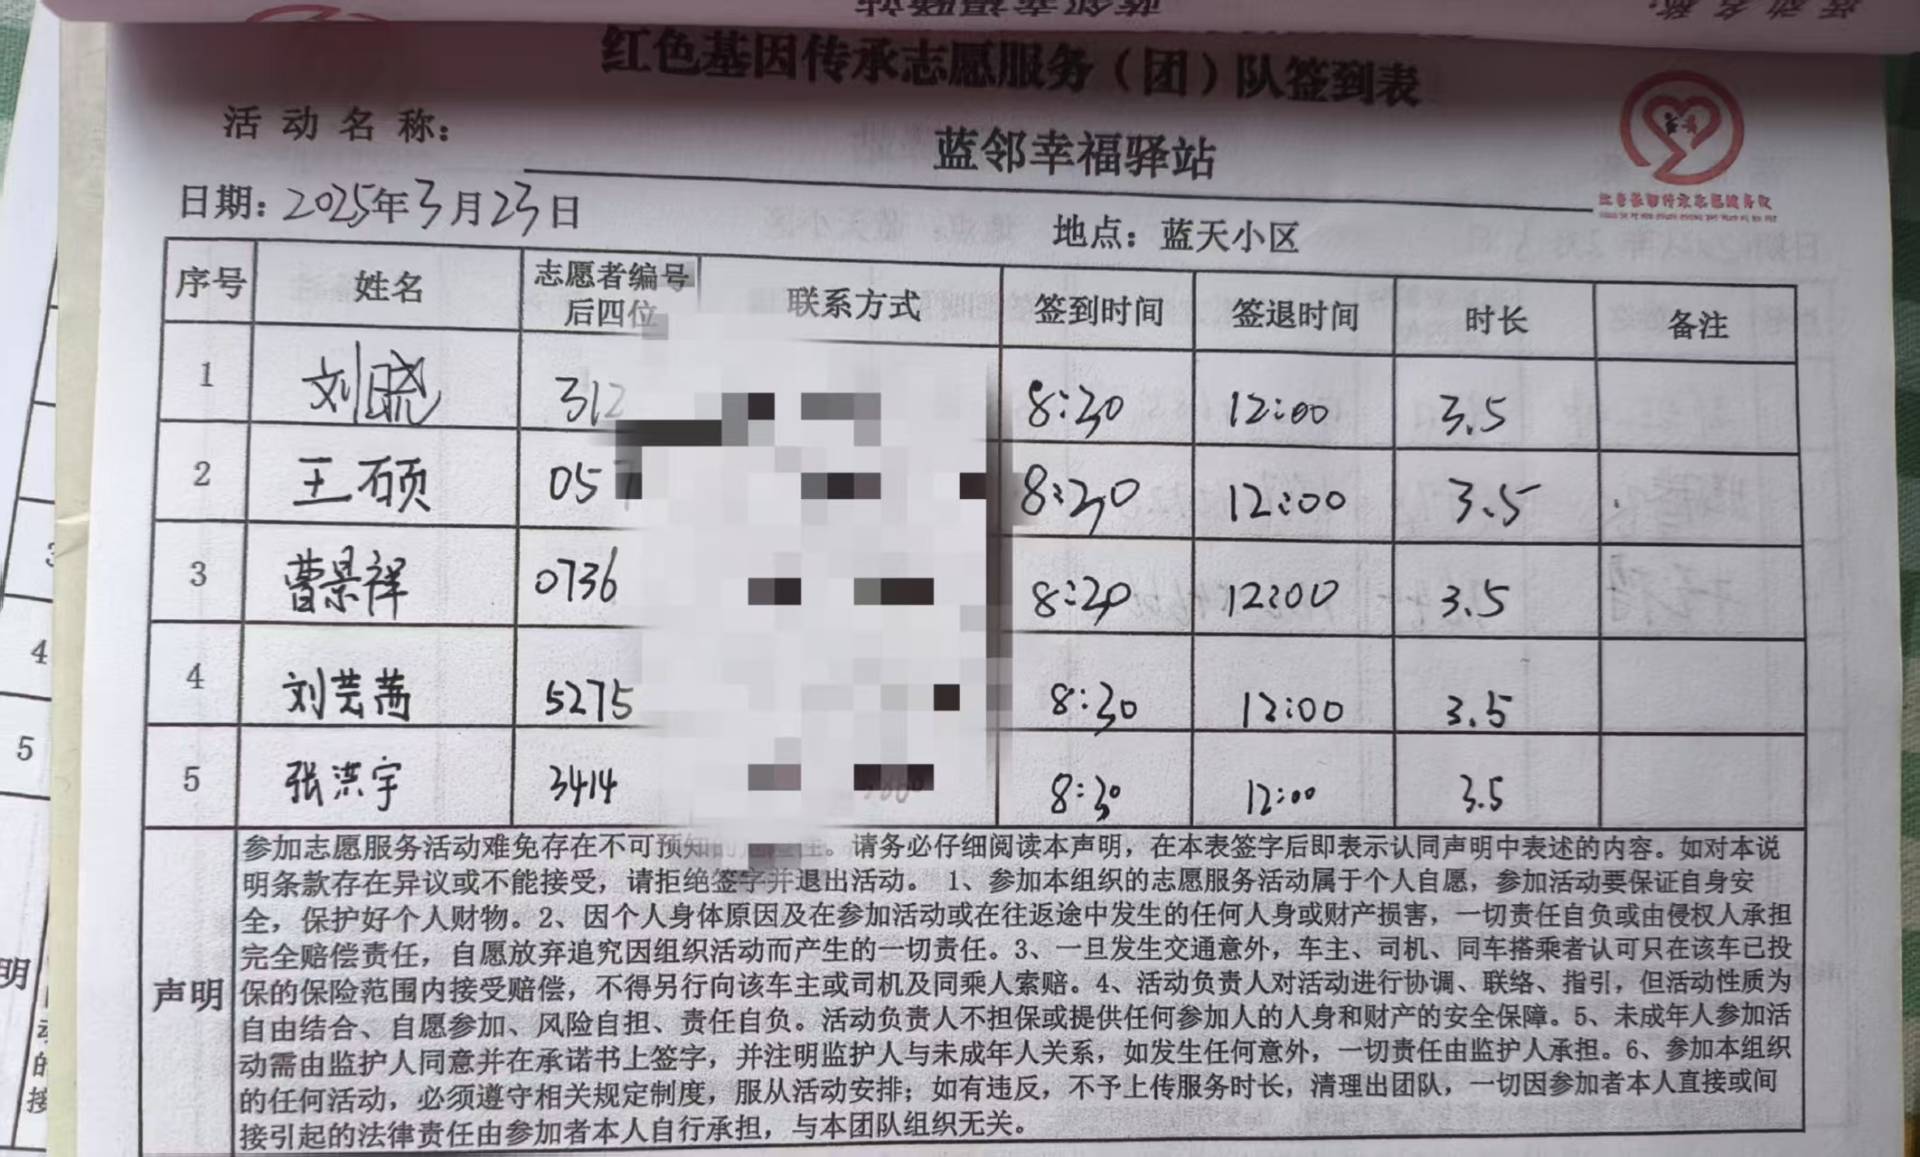 红色基因传承志愿服务（团）队签到表
活动名称：
蓝邻幸福驿站
日期：2025年3月23日
地点：蓝天小区
序号 姓名 志愿者编号后四位 联系方式 签到时间 签退时间 时长 备注
1 刘晓 312 8:30 12:00 3.5
2 王硕 057 8:30 12:00 3.5
3 曹景祥 0736 8:30 12:00 3.5
4 刘芸茜 5275 8:30 12:00 3.5
5 张洪宇 3414 8:30 12:00 3.5
声明
参加志愿服务活动难免存在不可预知的危险性。请务必仔细阅读本声明，在本表签字后即表示认同声明中表述的内容。如对本说
明条款存在异议或不能接受，请拒绝签字并退出活动。 1、参加本组织的志愿服务活动属于个人自愿，参加活动要保证自身安
全，保护好个人财物。2、因个人身体原因及在参加活动或在往返途中发生的任何人身或财产损害，一切责任自负或由侵权人承担
完全赔偿责任，自愿放弃追究因组织活动而产生的一切责任。3、一旦发生交通意外，车主、司机、同车搭乘者认可只在该车已投
保的保险范围内接受赔偿，不得另行向该车主或司机及同乘人索赔。4、活动负责人对活动进行协调、联络、指引，但活动性质为
自由结合、自愿参加、风险自担、责任自负。活动负责人不担保或提供任何参加人的人身和财产的安全保障。5、未成年人参加活
动需由监护人同意并在承诺书上签字，并注明监护人与未成年人关系，如发生任何意外，一切责任由监护人承担。6、参加本组织
的任何活动，必须遵守相关规定制度，服从活动安排；如有违反，不予上传服务时长，清理出团队，一切因参加者本人直接或间
接引起的法律责任由参加者本人自行承担，与本团队组织无关。